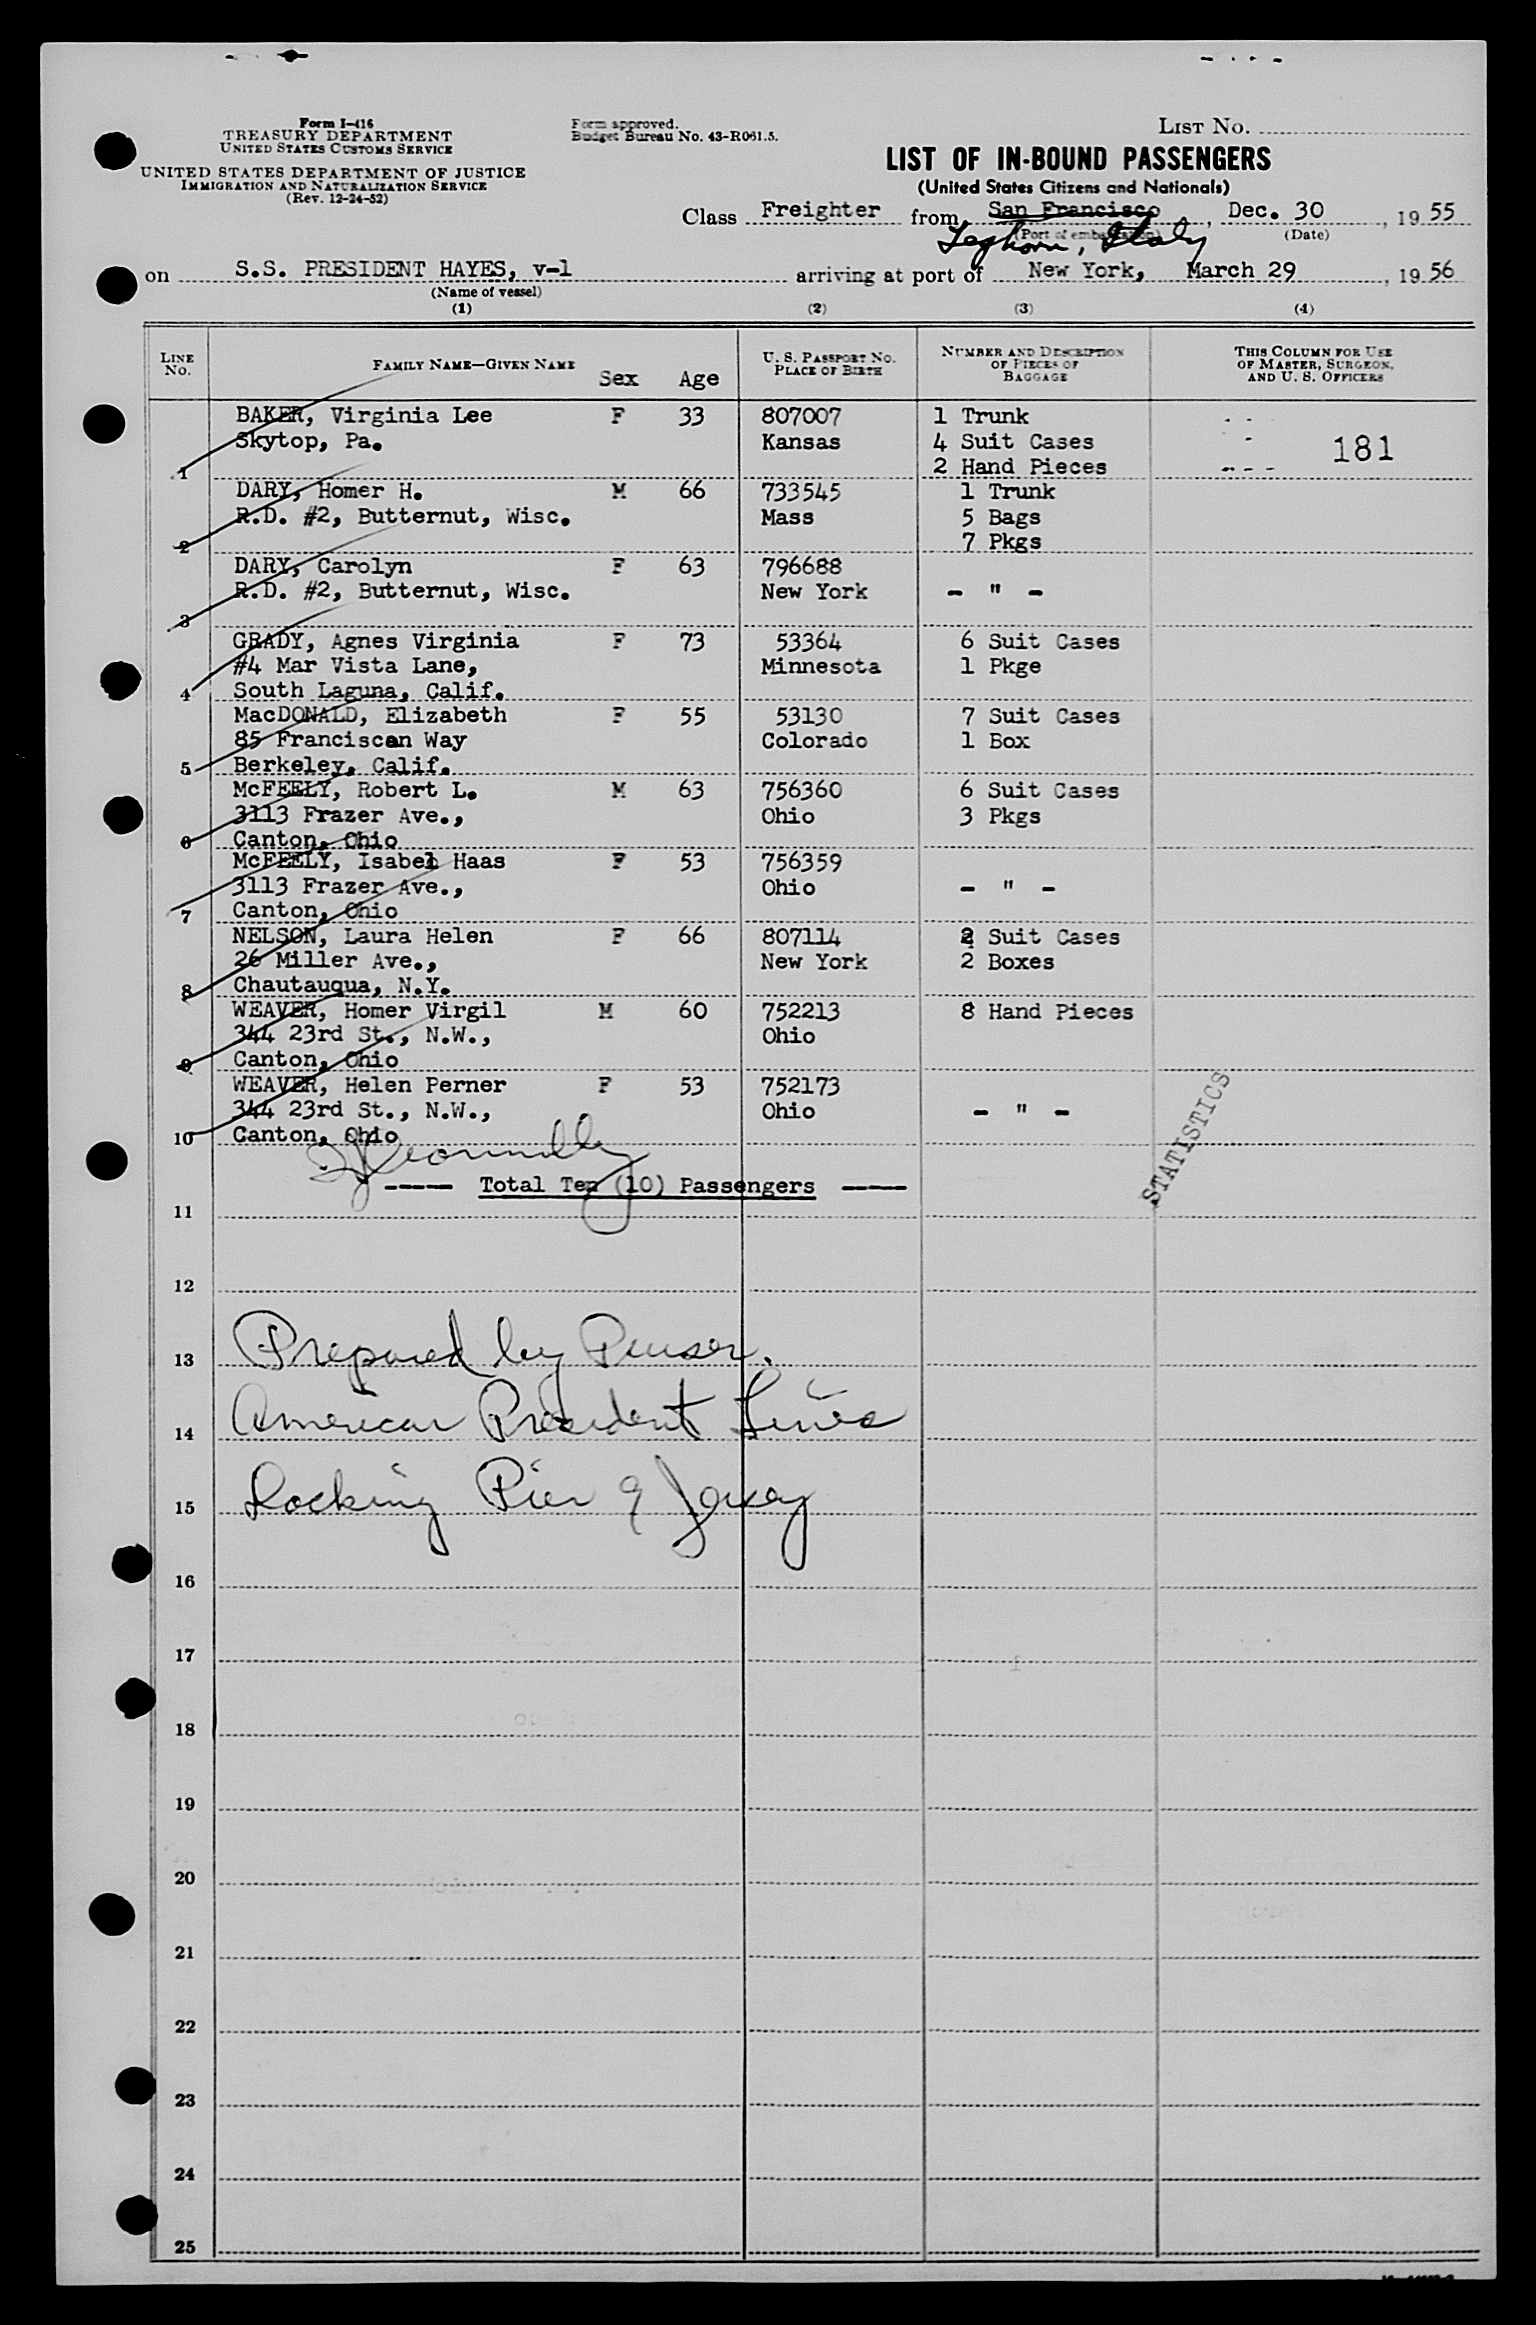 Form I-416
TREASURY DEPARTMENT
UNITED STATES CUSTOMS SERVICE
UNITED STATES DEPARTMENT OF JUSTICE
IMMIGRATION AND NATURALIZATION SERVICE
(Rev. 12-24-52)
Form approved.
Budget Bureau No. 43-R061.5.
LIST NO.
LIST OF IN-BOUND PASSENGERS
(United States Citizens and Nationals)
Class Freighter from San Francisco, Dec. 30, 1955
(Port of embarkation) (Date)
Leghorn, Italy
on S.S. PRESIDENT HAYES, v-1 arriving at port of New York, March 29, 1956
(Name of vessel)
(1) (2) (3) (4)
LINE NO. FAMILY NAME—GIVEN NAME Sex Age U. S. PASSPORT NO. PLACE OF BIRTH NUMBER AND DESCRIPTION OF PIECES OF BAGGAGE THIS COLUMN FOR USE OF MASTER, SURGEON, AND U. S. OFFICERS
BAKER, Virginia Lee F 33 807007 1 Trunk
Skytop, Pa. Kansas 4 Suit Cases 181
1 2 Hand Pieces
DARY, Homer H. M 66 733545 1 Trunk
R.D. #2, Butternut, Wisc. Mass 5 Bags
2 7 Pkgs
DARY, Carolyn F 63 796688
R.D. #2, Butternut, Wisc. New York - " -
3
GRADY, Agnes Virginia F 73 53364 6 Suit Cases
#4 Mar Vista Lane, Minnesota 1 Pkge
4 South Laguna, Calif.
MacDONALD, Elizabeth F 55 53130 7 Suit Cases
85 Franciscan Way Colorado 1 Box
5 Berkeley, Calif.
McFEELY, Robert L. M 63 756360 6 Suit Cases
3113 Frazer Ave., Ohio 3 Pkgs
6 Canton, Ohio
McFEELY, Isabel Haas F 53 756359
3113 Frazer Ave., Ohio - " -
7 Canton, Ohio
NELSON, Laura Helen F 66 807114 2 Suit Cases
26 Miller Ave., New York 2 Boxes
8 Chautauqua, N.Y.
WEAVER, Homer Virgil M 60 752213 8 Hand Pieces
344 23rd St., N.W., Ohio
9 Canton, Ohio
WEAVER, Helen Perner F 53 752173
344 23rd St., N.W., Ohio - " -
10 Canton, Ohio
STATISTICS
----- Total Ten (10) Passengers -----
11
12
13 Prepared by Purser.
14 American President Lines
15 Docking Pier 9 Jersey
16
17
18
19
20
21
22
23
24
25